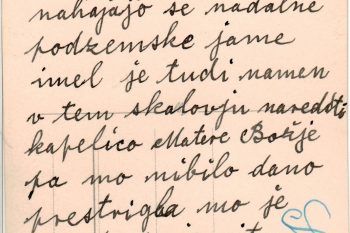 nahajajo se nadalne
podzemske jame
imel je tudi namen
v tem skalovju naredeti
kapelico Matere Božje
pa mo nibilo dano
prestrigla mo je